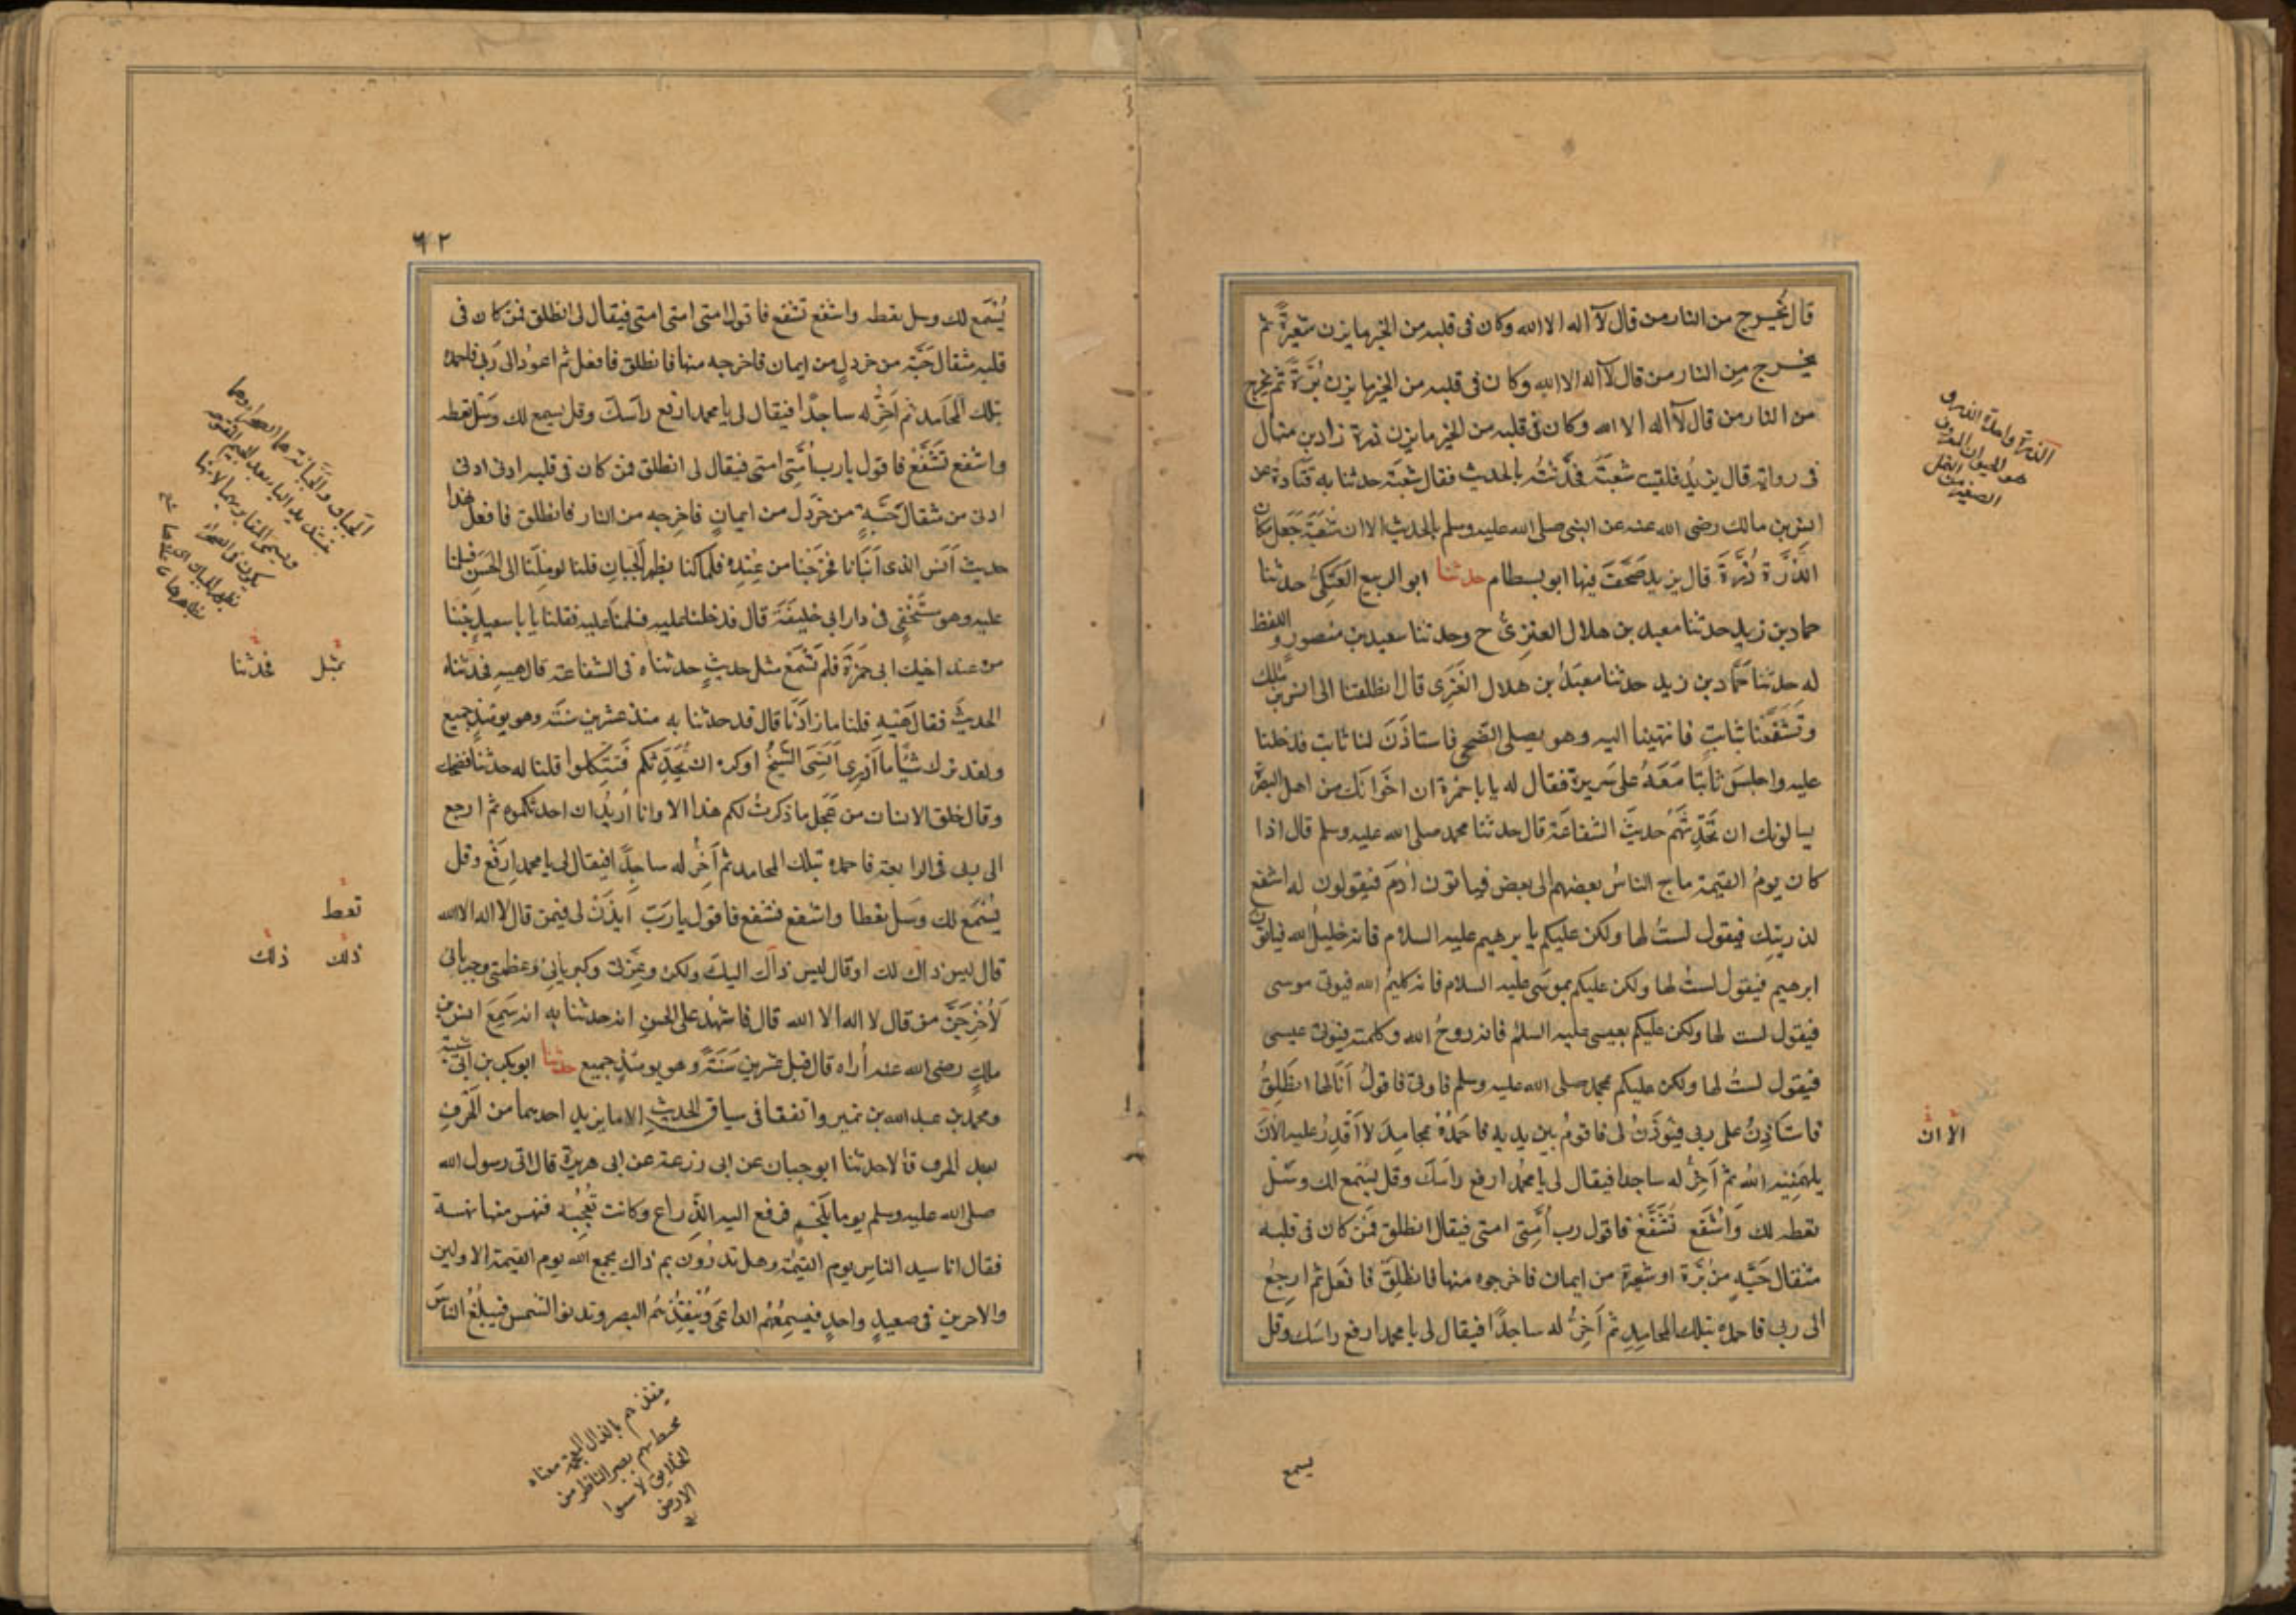 قال يخرج من النار من قال لآ اله الا الله وكان فى قلبه من الخير ما يزن شعيرةً ثم
يخرج مِن النار من قال لآ اله الا الله وكان فى قلبه من الخير ما يزن بُرَّةً ثم يخرج
من النار من قال لآ اله الا الله وكان فى قلبه من الخير ما يزن ذرة زاد بن منهال
فى روايته قال يزيدُ فلقيت شعبَةَ فحَدَّثتُه بالحديث فقال شعبَة حدثنا به قَتَادةُ عن
انس بن مالك رضى الله عنه عن النبى صلى الله عليه وسلم بالحديث الا ان شعبَةَ جَعَل مكان
الذَّرَّة ذُرَةً قال يزيد صَحَّفَ فيها ابو بسطام حدثنا ابو الربيع العَتَكِىُّ حدثنا
حماد بن زيدٍ حدثنا معبد بن هلال العنزىُّ ح وحدثنا سعيد بن منصورٍ واللفظ
له حدثنا حَمَّاد بن زيد حدثنا معبَدُ بن هلال العَنَزِى قال انطلقنا الى انس بن مَالك
وتَشَفَّعْنا بثابتٍ فانتهينا اليه وهو يصلى الضّحى فاستاذَنَ لنا ثابت فدخلنا
عليه واجلسَ ثابتا مَعَهُ على سَريرِه فقال له يا با حمزة ان اخوَانَك من اهل البصرة
يسالونك ان تُحَدِّثهُم حديثَ الشفاعَة قال حدثنا محمد صلى الله عليه وسلم قال اذا
كان يومُ القيمة ماج الناسُ بعضهم الى بعض فياتون ادمَ فيقولون له اشفع
لذريتك فيقول لستُ لها ولكن عليكم بابرهيم عليه السلام فانه خليلُ الله فياتون
ابرهيم فيقول لستُ لها ولكن عليكم بموسَى عليه السلام فانه كليمُ الله فيوتى موسى
فيقول لست لها ولكن عليكم بعيسى عليه السلمُ فانه روحُ الله وكلمته فيوتى عيسى
فيقول لستُ لها ولكن عليكم بمحمد صلى الله عليه وسلم فاوتى فاقولُ أنَا لها انطَلِقُ
فاستَاذِنُ على ربى فيُؤذَنُ لى فاقومُ بين يديه فاحمَدُهُ بمحامدَ لا أقدِرُ عليه الآن
يلهمنيه اللهُ ثم آخِرُّ له ساجدا فيقال لى يا محمدُ ارفع راسَكَ وقل يُسْمَع لك وسَلْ
تعطه لك وَاشْفَع تُشَفَّعْ فاقول رب أُمَّتِى امتى فيقال انطلق فَمَن كان فى قلبه
مثقال حَبَّةٍ من بُرَّة او شعيرة من ايمان فاخرجوه منها فانطلِق فافعَل ثم ارجعُ
الى ربى فاحمده بتلك المحامِدِ ثم آخِرُّ له ساجدًا فيقال لى يا محمد ارفع راسَك وقل
الذرة واحدة الذر و
هو الحيوان المعروف
النمل
الصغير
الا ان
يسمع
٦٢
يُسْمَع لك وسل تعطه واشفع تشفع فاقول امتى امتى امتى فيقال لى انطلق فمن كان فى
قلبه مثقال حَبَّة من خردلٍ من ايمان فاخرجه منها فانطلق فافعل ثم اعودُ الى رَبى فاحمده
بتلك المحَامد ثم آخِرُّ له ساجدًا فيقال لى يا محمد ارفع راسَكَ وقل يسمع لك وسَل تعطه
واشفع تشَفَّعْ فاقول يارب أُمَّتِى امتى فيقال لى انطلق فمن كان فى قلبه ادنى ادنى
ادنى من مثقال حَبَّةٍ من خَرْدَل من ايمانٍ فاخرجه من النار فانطلق فافعل هذا
حديث أنَس الذى أنبَأنا فخَرَجْنا من عِندِه فلمَّا كنا بظهر الجَبانِ قلنا لو مِلْنَا الى الحَسَن فسلمنا
عليه وهو مستَخْفٍ فى دار ابى خليفَةَ قال فدخلنا عليه فسلمنَا عليه فقلنا يا با سعيد جئنا
من عند اخيك ابى حمزَةَ فلم نَسْمَعْ مثل حديثٍ حدثناه فى الشفاعة قال هيهِ فحدَّثناه
الحديثَ فقال هِيْهِ قلنا ما زادَنَا قال قد حدثنا به منذ عشرين سنَة وهو يومئذٍ جميع
ولقد ترك شيًأ ما أدرِى أنَسِىَ الشيخُ او كره ان يُحَدِّثكم فتتَّكِلوا قلنا له حدثنا فضحك
وقال خلق الانسان من عَجَل ما ذكرتُ لكم هذا الا وانا أُريدُ ان احدثكموه ثم ارجع
الى ربى فى الرابعة فاحمده بتلك المحامد ثم آخِرُّ له ساجِدًا فيقال لى يا محمد ارفَع وقل
يُسْمَع لك وسَل تعطا واشفع تشفع فاقول يا رَبّ ايذَنْ لى فيمن قال لا اله الا الله
قال ليس ذاك لك او قال ليس ذاك اليكَ ولكن وعِزّتى وكبريائى وعظمتى وجبريائى
لَأُخرِجَنَّ من قال لا اله الا الله قال فاشهدُ على الحسنِ انه حدثنا به انه سَمِعَ انس بن
مالكٍ رضى الله عنه أُراه قال قبل عشرين سَنَةً وهو يومئذٍ جميع حدثنا ابو بكر بن أبى شيبة
ومحمد بن عبد الله بن نمير واتفقا فى سياق الحديثِ الا ما يزيد احدهما من الحَرْفِ
بعد الحرف قالا حدثنا ابو حيان عن ابى زرعة عن ابى هريرة قال اتى رسول الله
صلى الله عليه وسلم يوما بلَحْمٍ فرفع اليه الذّراع وكانت تُعْجِبُه فنهس منها نهسة
فقال انا سيد الناسِ يوم القيمة وهل تدرُون بم ذاك يجمع الله يوم القيمة الاولين
والاخرين فى صعيدٍ واحدٍ فيسمِعُهُم الداعى ويُنفِذُهُم البصر وتدنو الشمس فيبلُغُ الناسَ
الجبان والجبانة هما الصحراء
مثل فحدثنا
تعط
ذلك ذلك
ينفذهم بالذال المعجمة معناه
يحيط بهم بصر الناظر من
الارض